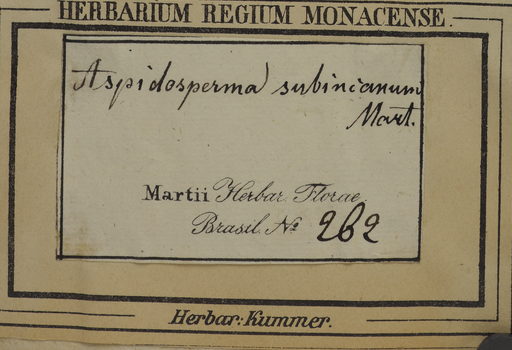 HERBARIUM REGIUM MONACENSE.
Aspidosperma subincanum
Mart.
Martii Herbar. Florae
Brasil. No 262
Herbar: Kummer.